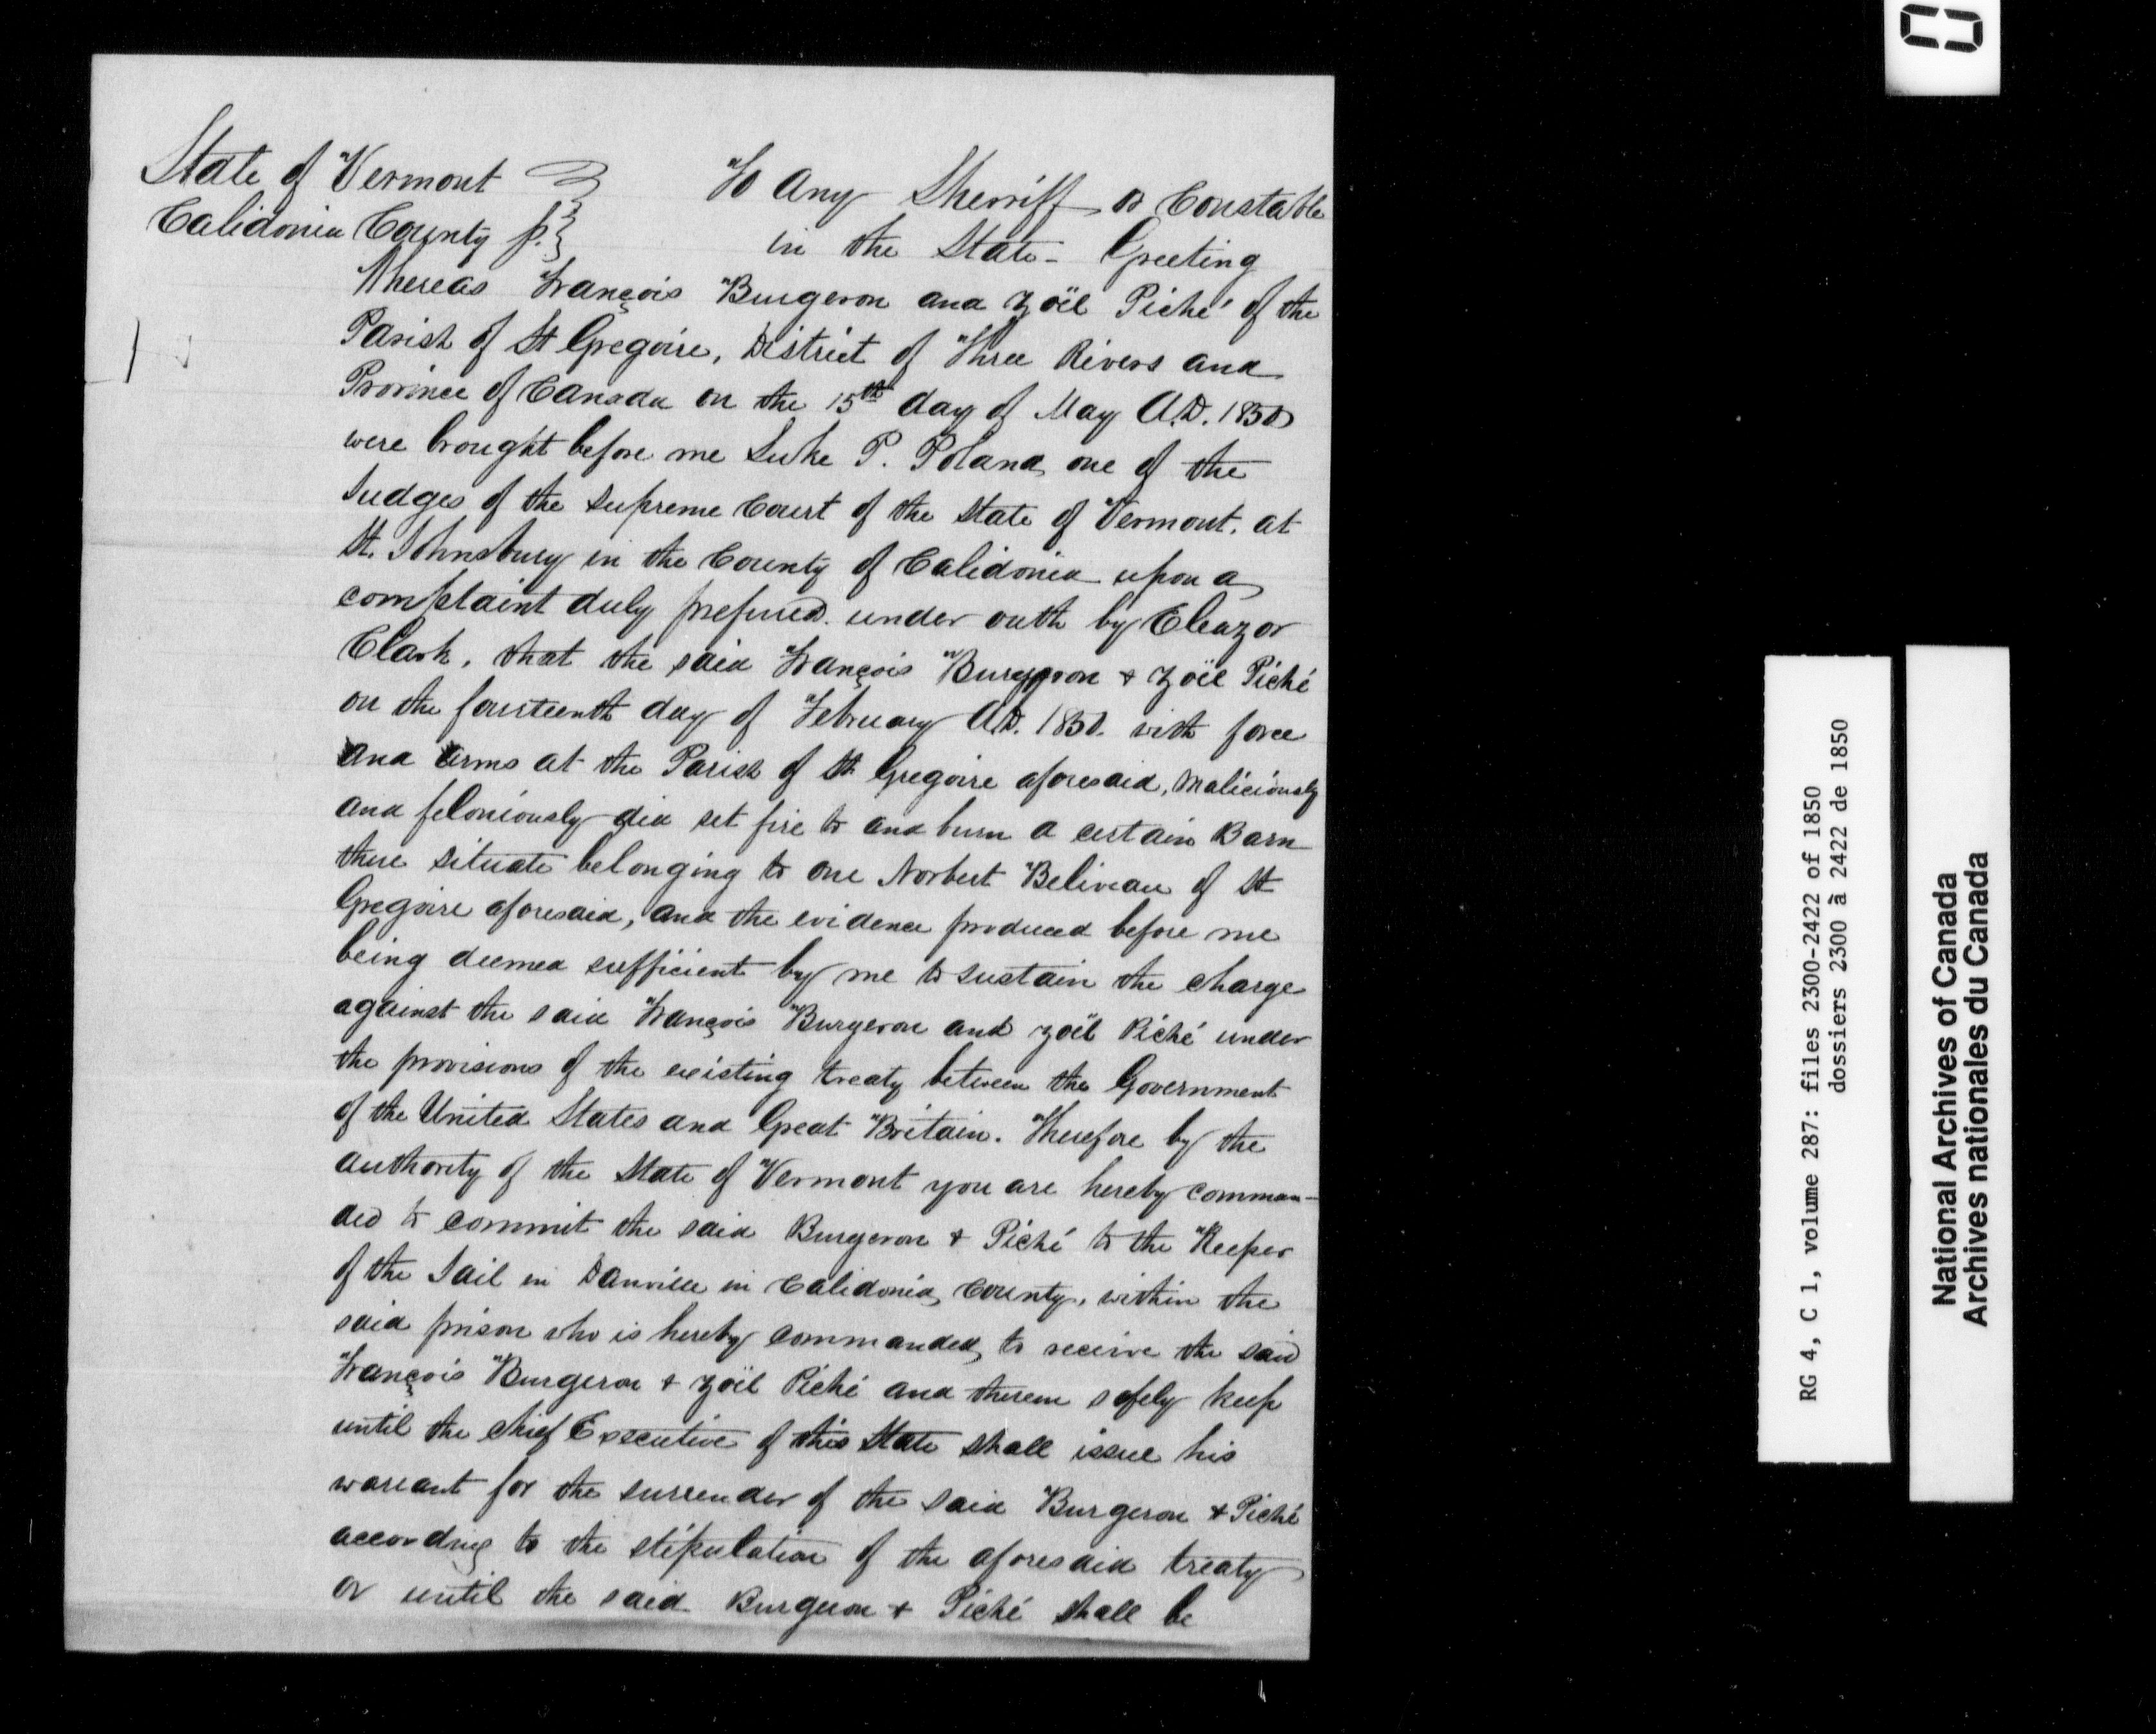 State of Vermont } To any Sherriff or Constable
Calidonia County ss. } in the State - Greeting
Whereas François Burgeron and Zoël Piché of the
Parish of St Gregoire, District of Three Rivers and
Province of Canada on the 15th day of May A.D. 1850
were brought before me Luke P. Poland one of the
Judges of the Supreme Court of the State of Vermont, at
St. Johnsbury in the County of Calidonia upon a
complaint duly prefured under outh by Eleazor
Clark, that the said François Burgeron & Zoël Piché
on the fourteenth day of February A.D. 1850. with force
and arms at the Parish of St. Gregoire aforesaid, Maliciously
and feloniously did set fire to and burn a certain Barn
there situate belonging to one Norbert Beliveau of St
Gregoire aforesaid, and the evidence produced before me
being deemed sufficient by me to sustain the charge
against the said François Burgeron and Zoël Piché under
the provisions of the existing treaty between the Government
of the United States and Great Britain. Therefore by the
authority of the State of Vermont you are hereby comman-
ded to commit the said Burgeron & Piché to the Keeper
of the Jail in Danville in Calidonia County, within the
said prison who is hereby commanded to receive the said
François Burgeron & Zoël Piché and therein safely keep
until the chief Executive of this State shall issue his
warrant for the surrender of the said Burgeron & Piché
according to the stipulation of the aforesaid treaty
or until the said Burgeron & Piché shall be
RG 4, C 1, volume 287: files 2300-2422 of 1850
dossiers 2300 à 2422 de 1850
National Archives of Canada
Archives nationales du Canada